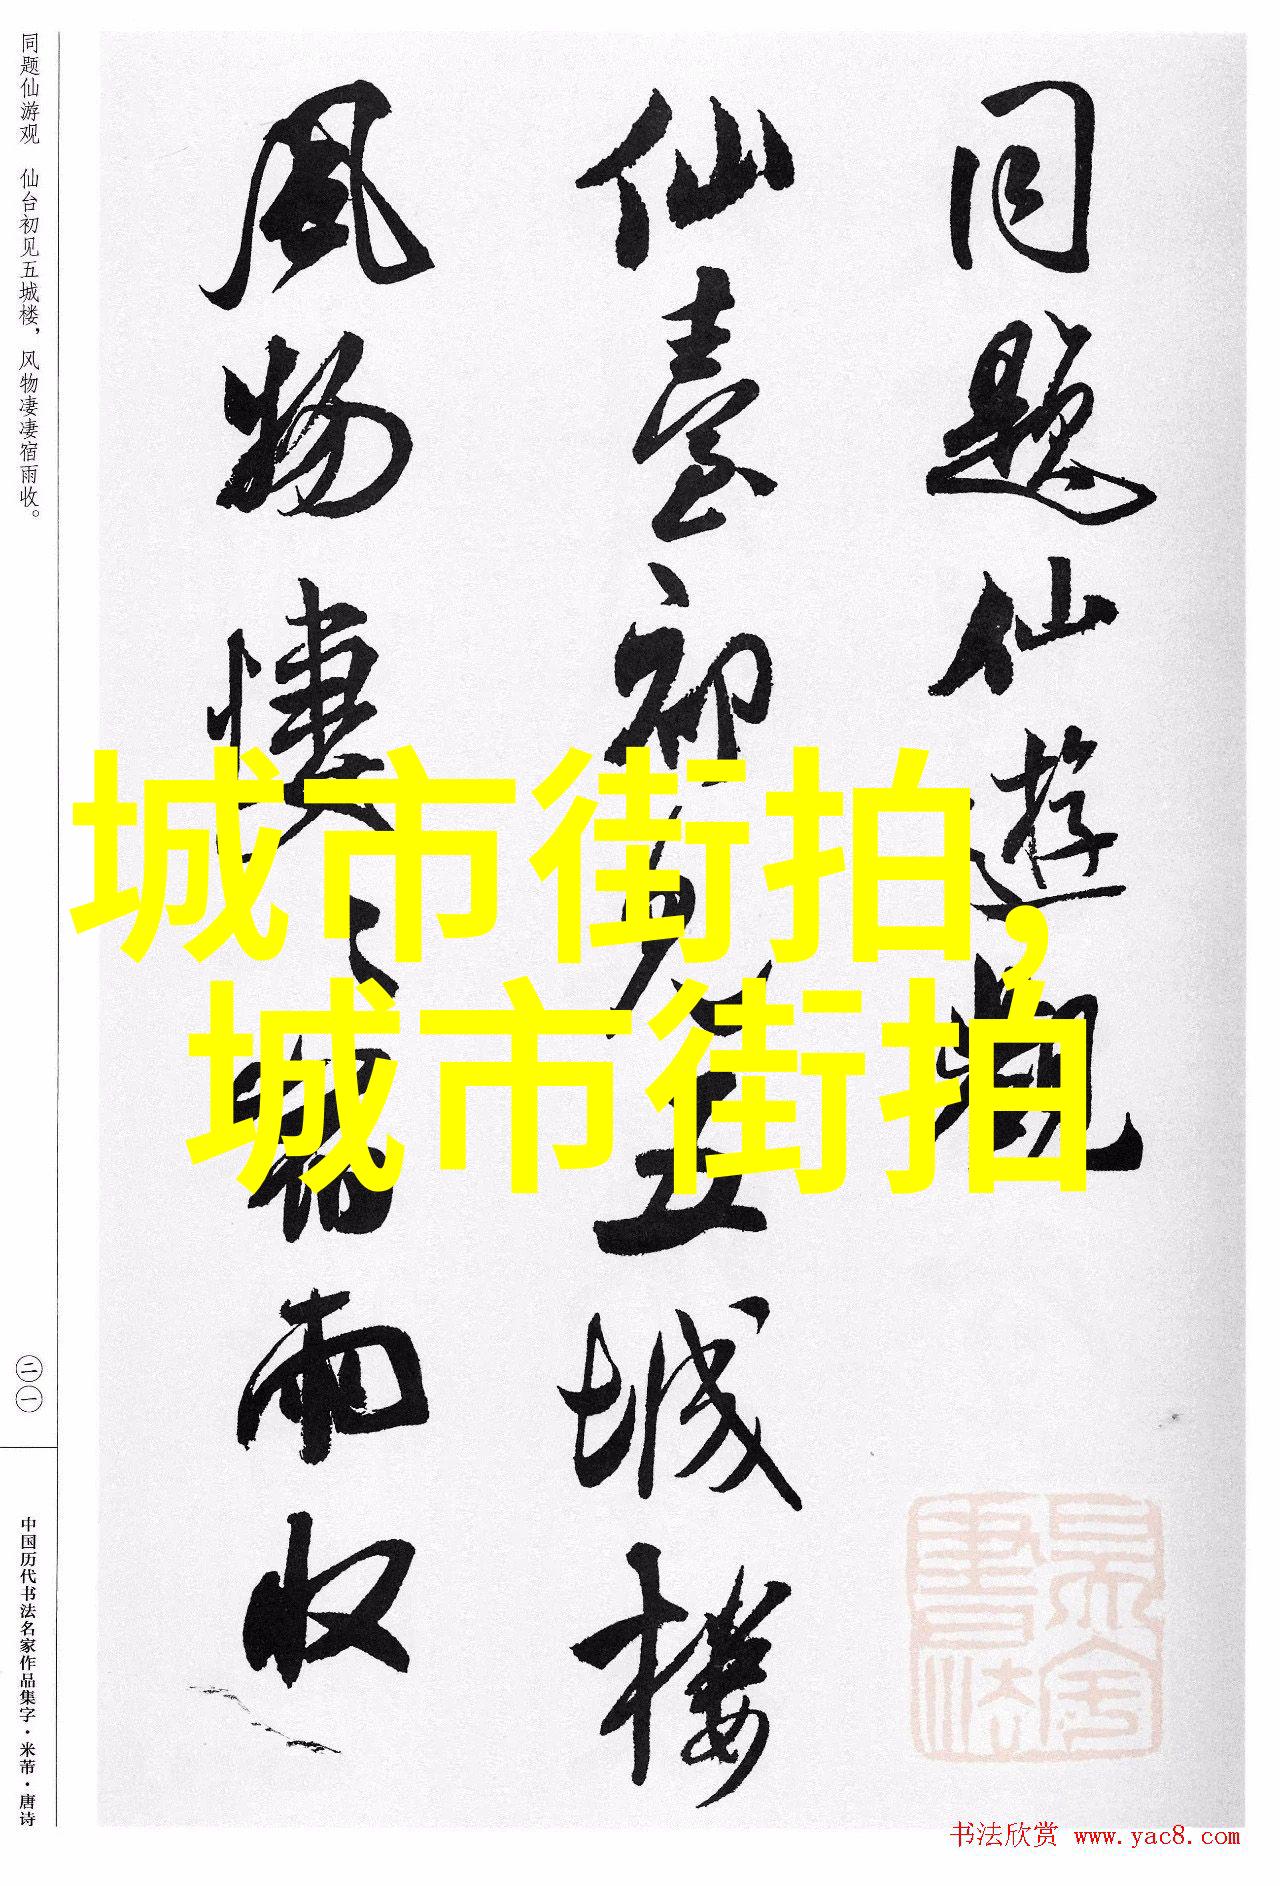 同题仙游观 仙台初见五城楼，风物凄凄宿雨收。
二一
中国历代书法名家作品集字·米芾·唐诗
同题仙遊观
仙臺初见五城楼
风物悽〻宿雨收
城市街拍,
城市街拍
书法欣赏 www.yac8.com